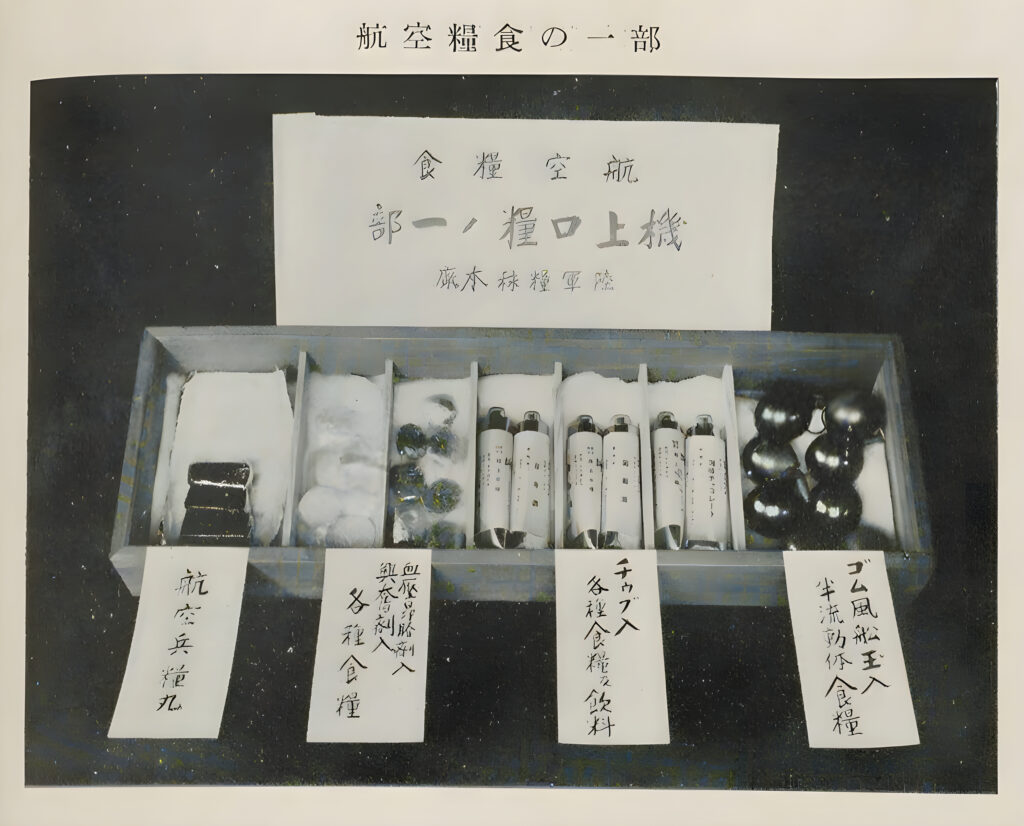 航空糧食の一部
航空糧食
機上口糧ノ一部
陸軍糧秣本廠
ゴム風船玉入
半流動体食糧
チウブ入
各種食糧及飲料
血壓昂騰剤入
興奮剤入
各種食糧
航空兵糧丸